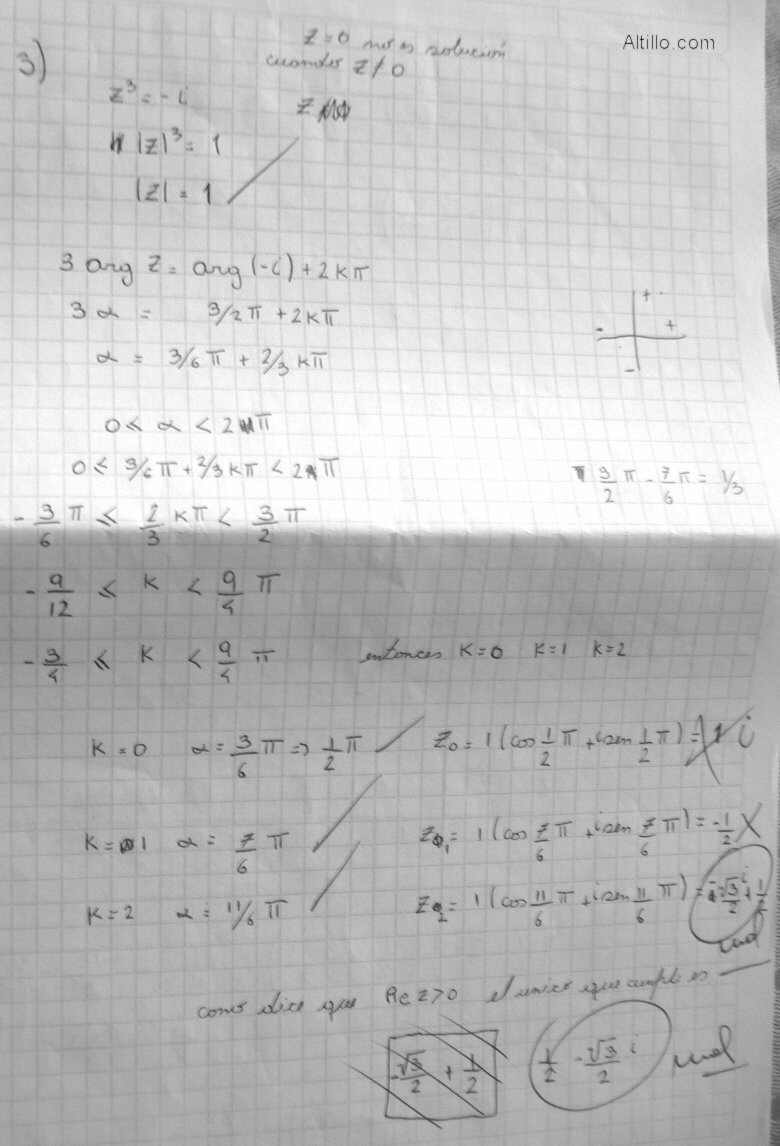 Altillo.com
3)
z=0 no es solución
cuando z≠0
z³ = -i
z
|z|³ = 1
|z| = 1
3 arg z = arg (-i) + 2kπ
3α = 3/2π + 2kπ
α = 3/6π + 2/3 kπ
+
- +
-
0 ≤ α < 2π
0 ≤ 3/6π + 2/3kπ < 2π
3/2 π - 7/6 π = 1/3
-3/6 π ≤ 2/3 kπ < 3/2 π
-9/12 ≤ k < 9/4 π
-3/4 ≤ k < 9/4 π entonces k=0 k=1 k=2
k=0 α = 3/6 π => 1/2 π z₀ = 1(cos 1/2 π + i sen 1/2 π) = i
k=1 α = 7/6 π z₁ = 1(cos 7/6 π + i sen 7/6 π) = -1/2
k=2 α = 11/6 π z₂ = 1(cos 11/6 π + i sen 11/6 π) = -√3/2 i + 1/2
mal
como dice que Re z>0 el unico que cumple es
-√3/2 + 1/2
1/2 - √3/2 i mal